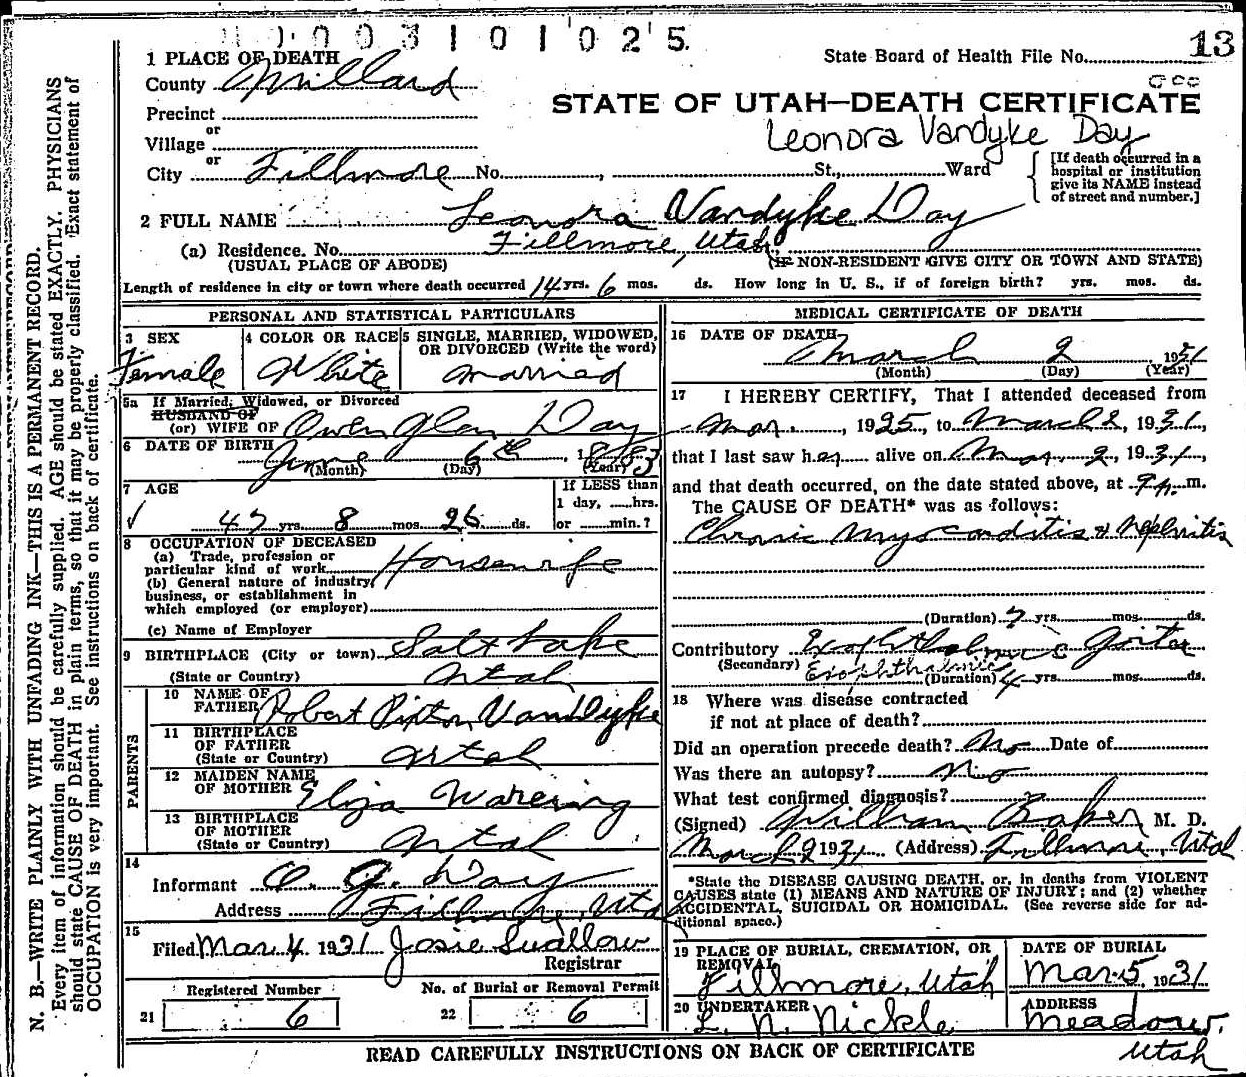 0003101025
13
1 PLACE OF DEATH
State Board of Health File No.
County Millard
STATE OF UTAH—DEATH CERTIFICATE
Precinct
or
Leonora Vandyke Day
Village
or
City Fillmore No. , St., Ward
[If death occurred in a hospital or institution give its NAME instead of street and number.]
2 FULL NAME Leonora Vandyke Day
(a) Residence. No. Fillmore, Utah
(USUAL PLACE OF ABODE) (IF NON-RESIDENT GIVE CITY OR TOWN AND STATE)
Length of residence in city or town where death occurred 14 yrs. 6 mos. ds. How long in U. S., if of foreign birth? yrs. mos. ds.
PERSONAL AND STATISTICAL PARTICULARS
3 SEX
Female
4 COLOR OR RACE
White
5 SINGLE, MARRIED, WIDOWED, OR DIVORCED (Write the word)
Married
5a If Married, Widowed, or Divorced
HUSBAND OF
(or) WIFE OF Owen Glen Day
6 DATE OF BIRTH June 6th, 1883
(Month) (Day) (Year)
7 AGE
47 yrs. 8 mos. 26 ds.
If LESS than
1 day, hrs.
or min.?
8 OCCUPATION OF DECEASED
(a) Trade, profession or
particular kind of work Housewife
(b) General nature of industry,
business, or establishment in
which employed (or employer)
(c) Name of Employer
9 BIRTHPLACE (City or town) Salt Lake
(State or Country) Utah
PARENTS
10 NAME OF FATHER Robert Pixton VanDyke
11 BIRTHPLACE
OF FATHER
(State or Country) Utah
12 MAIDEN NAME
OF MOTHER Eliza Wareing
13 BIRTHPLACE
OF MOTHER
(State or Country) Utah
14
Informant O. G. Day
Address Fillmore, Utah
15
Filed Mar. 4 1931 Josie Swallow
Registrar
Registered Number
21 6
No. of Burial or Removal Permit
22 6
MEDICAL CERTIFICATE OF DEATH
16 DATE OF DEATH
March 2, 1931
(Month) (Day) (Year)
17 I HEREBY CERTIFY, That I attended deceased from
Mar. , 1925, to March 2, 1931,
that I last saw her alive on Mar. 2, 1931,
and that death occurred, on the date stated above, at m.
The CAUSE OF DEATH* was as follows:
Chronic Myocarditis & Nephritis
(Duration) 7 yrs. mos. ds.
Contributory Exophthalmic Goiter
(Secondary) Exophthalmic
(Duration) 4 yrs. mos. ds.
18 Where was disease contracted
if not at place of death?
Did an operation precede death? No Date of
Was there an autopsy? No
What test confirmed diagnosis?
(Signed) William Baker M. D.
March 2 1931 (Address) Fillmore, Utah
*State the DISEASE CAUSING DEATH, or, in deaths from VIOLENT
CAUSES state (1) MEANS AND NATURE OF INJURY; and (2) whether
ACCIDENTAL, SUICIDAL OR HOMICIDAL. (See reverse side for ad-
ditional space.)
19 PLACE OF BURIAL, CREMATION, OR
REMOVAL
Fillmore, Utah
DATE OF BURIAL
Mar. 5, 1931
20 UNDERTAKER
L. N. Nickle
ADDRESS
Meadow,
Utah
READ CAREFULLY INSTRUCTIONS ON BACK OF CERTIFICATE
N. B.—WRITE PLAINLY WITH UNFADING INK—THIS IS A PERMANENT RECORD.
Every item of information should be carefully supplied. AGE should be stated EXACTLY. PHYSICIANS
should state CAUSE OF DEATH in plain terms, so that it may be properly classified. Exact statement of
OCCUPATION is very important. See instructions on back of certificate.